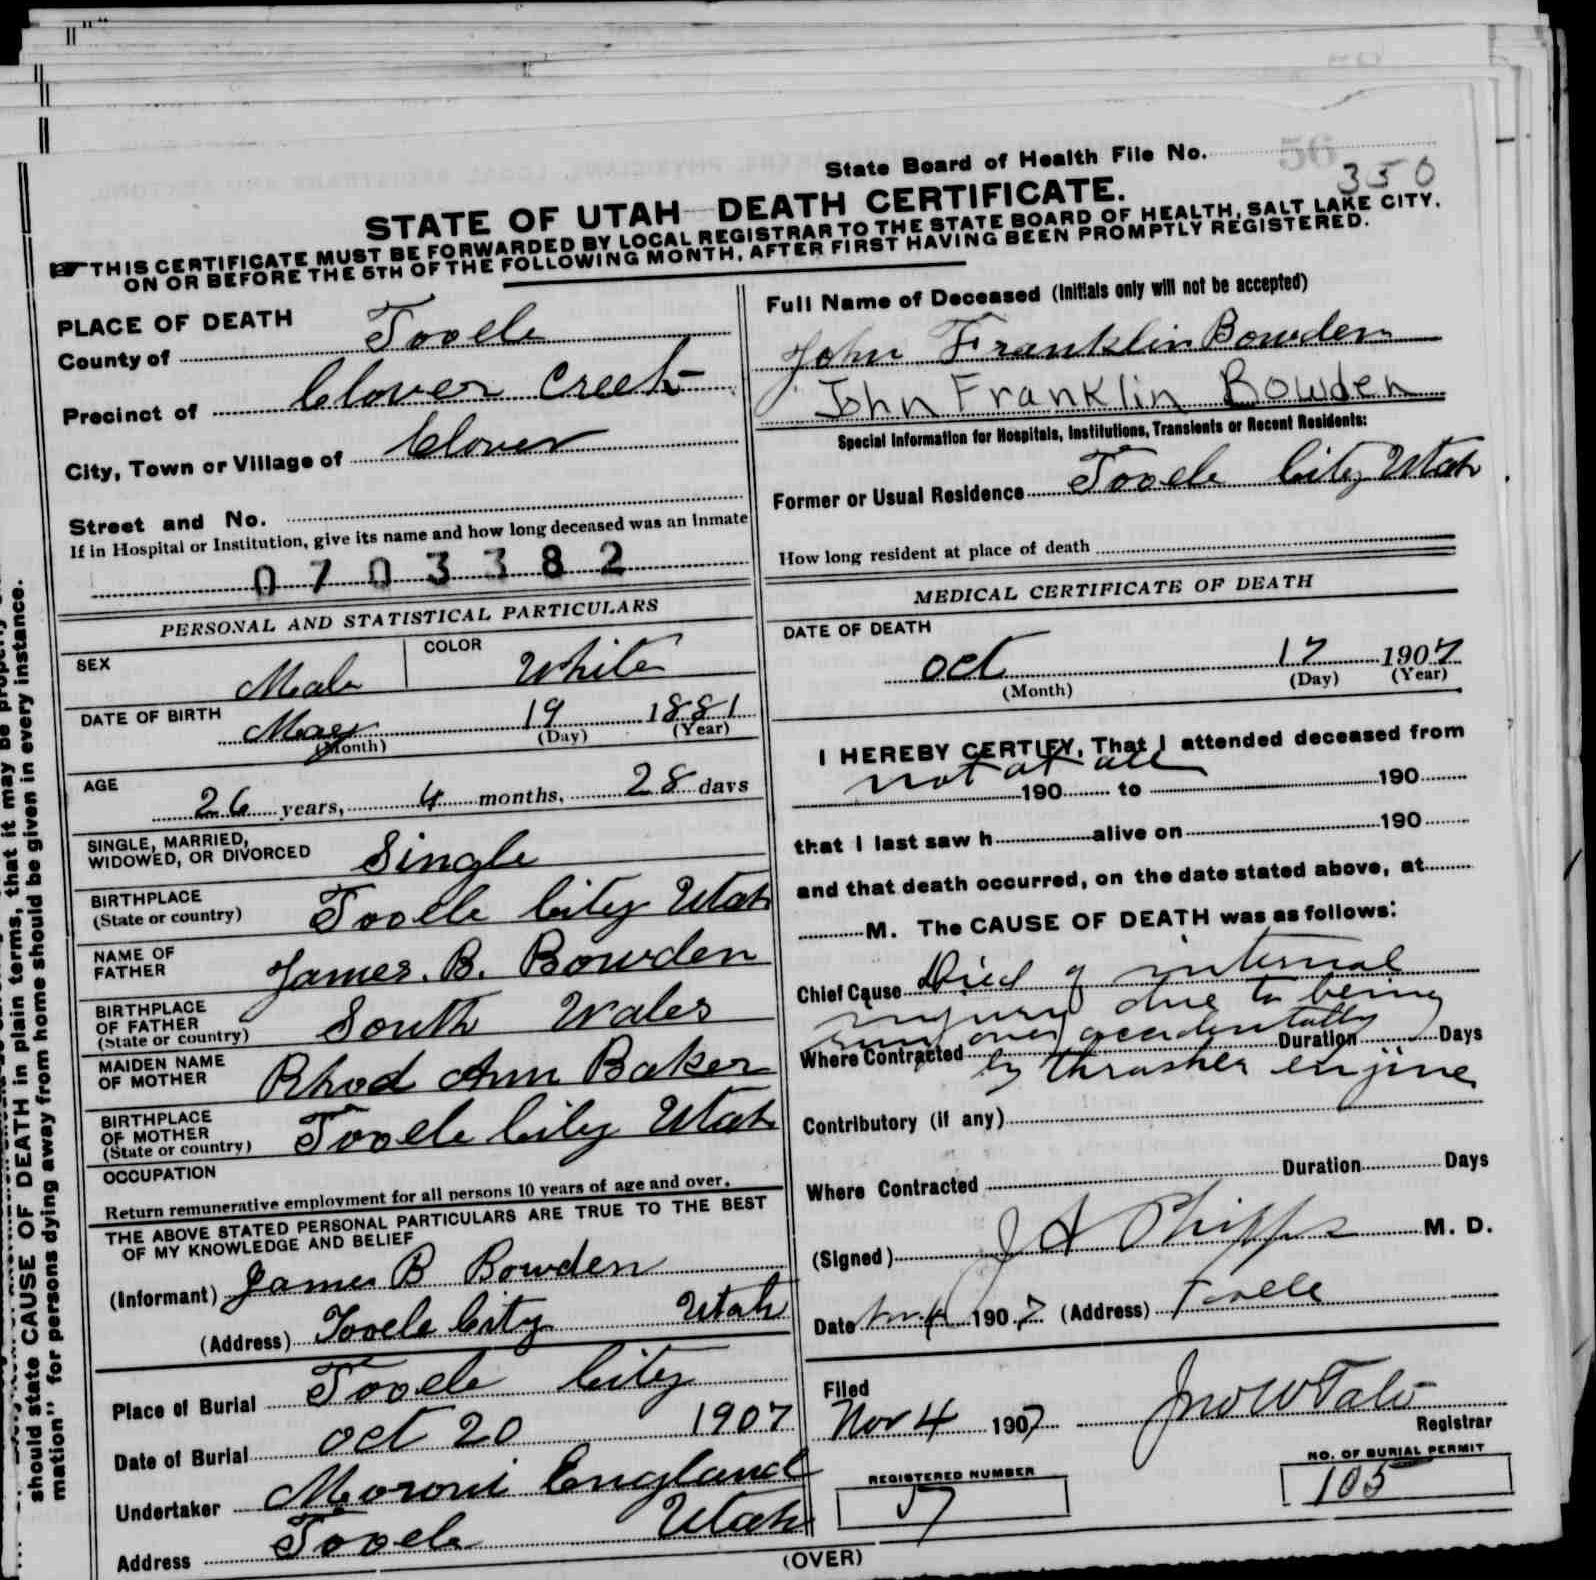 State Board of Health File No. 56
350
STATE OF UTAH—DEATH CERTIFICATE.
☞THIS CERTIFICATE MUST BE FORWARDED BY LOCAL REGISTRAR TO THE STATE BOARD OF HEALTH, SALT LAKE CITY,
ON OR BEFORE THE 5TH OF THE FOLLOWING MONTH, AFTER FIRST HAVING BEEN PROMPTLY REGISTERED.
PLACE OF DEATH
County of Tooele
Precinct of Clover Creek
City, Town or Village of Clover
Street and No.
If in Hospital or Institution, give its name and how long deceased was an inmate
0703382
PERSONAL AND STATISTICAL PARTICULARS
SEX Male COLOR White
DATE OF BIRTH May 19 1881
(Month) (Day) (Year)
AGE 26 years, 4 months, 28 days
SINGLE, MARRIED,
WIDOWED, OR DIVORCED Single
BIRTHPLACE
(State or country) Tooele City Utah
NAME OF
FATHER James. B. Bowden
BIRTHPLACE
OF FATHER
(State or country) South Wales
MAIDEN NAME
OF MOTHER Rhod Ann Baker
BIRTHPLACE
OF MOTHER
(State or country) Tooele City Utah
OCCUPATION
Return remunerative employment for all persons 10 years of age and over.
THE ABOVE STATED PERSONAL PARTICULARS ARE TRUE TO THE BEST
OF MY KNOWLEDGE AND BELIEF
(Informant) James B Bowden
(Address) Tooele City Utah
Place of Burial Tooele City
Date of Burial Oct 20 1907
Undertaker Moroni England
Address Tooele Utah
Full Name of Deceased (Initials only will not be accepted)
John Franklin Bowden
John Franklin Bowden
Special Information for Hospitals, Institutions, Transients or Recent Residents:
Former or Usual Residence Tooele City Utah
How long resident at place of death
MEDICAL CERTIFICATE OF DEATH
DATE OF DEATH
Oct 17 1907
(Month) (Day) (Year)
I HEREBY CERTIFY, That I attended deceased from
not at all 190 to 190
that I last saw h alive on 190
and that death occurred, on the date stated above, at
M. The CAUSE OF DEATH was as follows:
Chief Cause Died of internal
injury due to being
run over accidentally
Where Contracted Duration Days
by thrasher enjine
Contributory (if any)
Where Contracted Duration Days
(Signed) J A Phipps M. D.
Date Nov 4 1907 (Address) Tooele
Filed
Nov 4 1907 Jno W Tate
Registrar
REGISTERED NUMBER
57
NO. OF BURIAL PERMIT
105
(OVER)
should state CAUSE OF DEATH in plain terms, that it may be
mation" for persons dying away from home should be given in every instance.